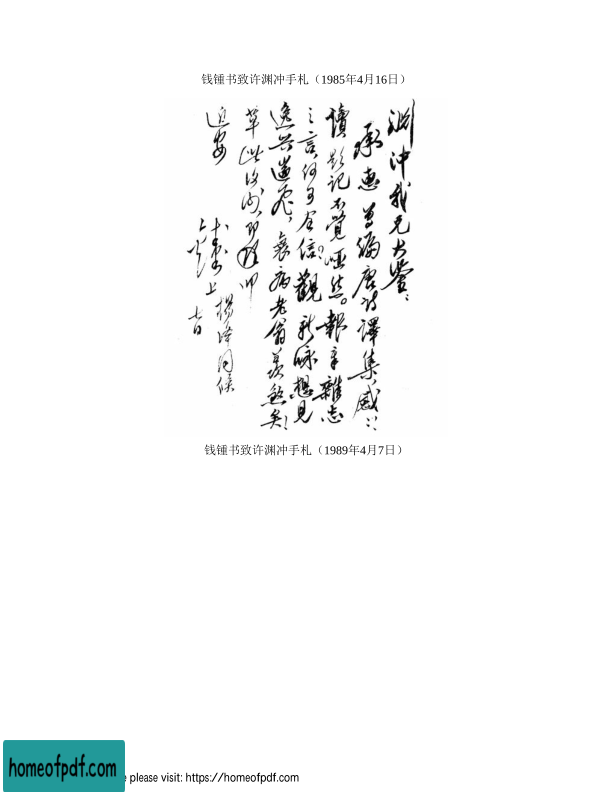 钱锺书致许渊冲手札（1985年4月16日）
渊冲我兄大鉴：
承惠尊编唐诗译集感：：
读影记不觉哑然。报章杂志
之言，何可全信？观新咏想见
逸兴遄飞，衰病老翁羡煞矣！
草此复谢，即
近安
钱锺书上 杨绛同候
七日
钱锺书致许渊冲手札（1989年4月7日）
homeofpdf.com
please visit: https://homeofpdf.com